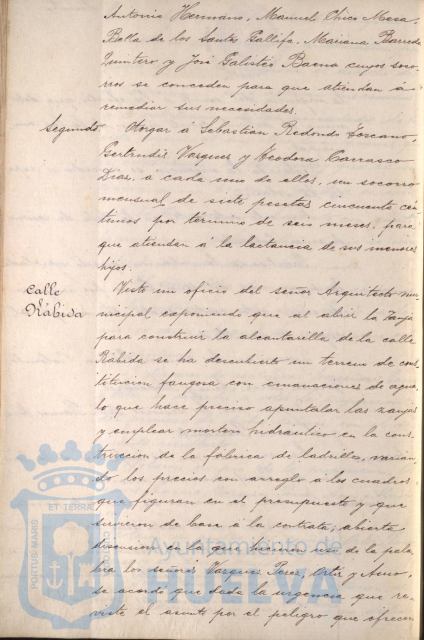 Antonia Hermano, Manuel Chico Mesa,
Balla de los Santos Gallifa, Mariana Barreda
Quintero y José Galisteo Baena cuyos soco-
rros se conceden para que atiendan á
remediar sus necesidades.
Segundo. Otorgar á Sebastian Redondo Toscano,
Gertrudis Vazquez y Teodora Carrasco
Diaz, á cada uno de ellos, un socorro
mensual de siete pesetas cincuenta cén-
timos por término de seis meses, para
que atiendan á la lactancia de sus menores
hijos.
Calle
Rábida
Visto un oficio del señor Arquitecto mu-
nicipal exponiendo que al abrir la zanja
para construir la alcantarilla de la calle
Rábida se ha descubierto un terreno de cons-
titucion fangosa con emanaciones de agua,
lo que hace preciso apuntalar las zanjas
y emplear mortero hidráulico en la cons-
trucción de la fábrica de ladrillos, varian-
do los precios con arreglo á los cuadros
que figuran en el presupuesto y que
sirvieron de base á la contrata, abierta
discusion en la que hicieron uso de la pala-
bra los señores Vazquez Perez, Ortiz y
se acordó que dada la urgencia que re-
viste el asunto por el peligro que ofrecen
PORTUS MARIS
ET TERRAE
Ayuntamiento de
HUELVA